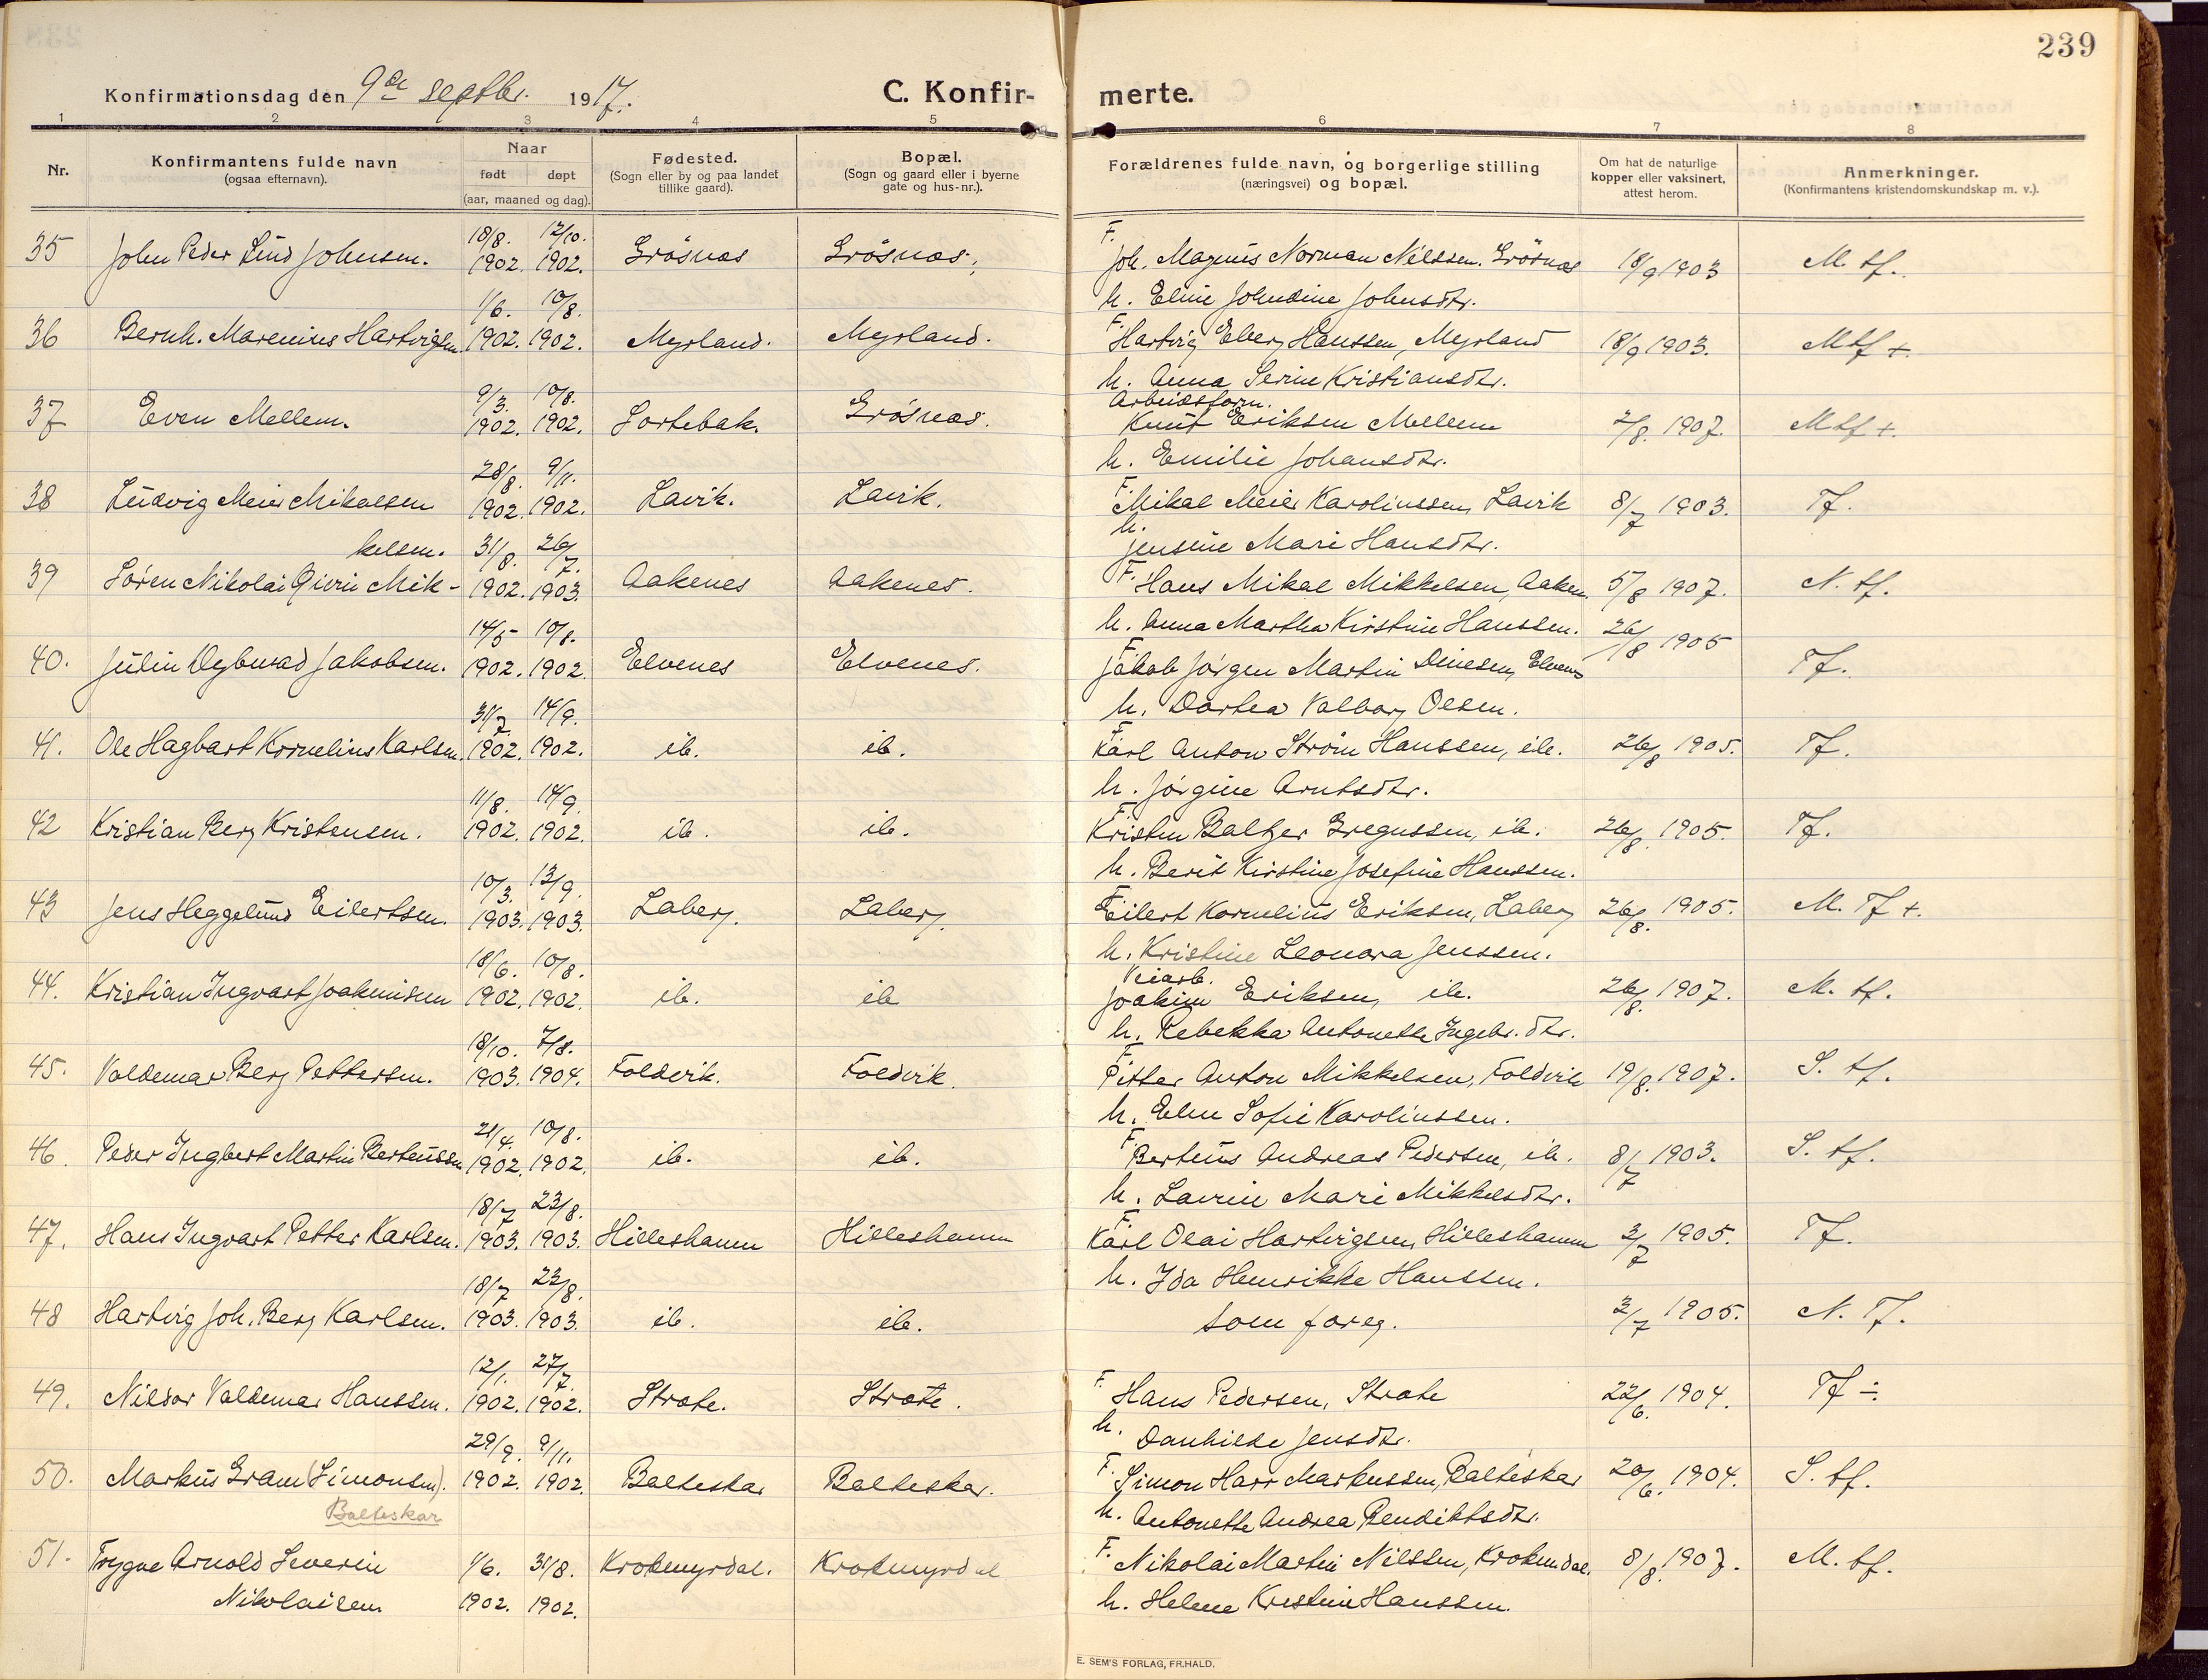 239
Konfirmationsdag den 9de septbr. 1917. C. Konfir- merte.
1 2 3 4 5 6 7 8
Nr. Konfirmantens fulde navn (ogsaa efternavn). Naar født døpt (aar, maaned og dag). Fødested. (Sogn eller by og paa landet tillike gaard). Bopæl. (Sogn og gaard eller i byerne gate og hus-nr.). Forældrenes fulde navn, og borgerlige stilling (næringsvei) og bopæl. Om hat de naturlige kopper eller vaksinert, attest herom. Anmerkninger. (Konfirmantens kristendomskundskap m. v.).
18/8. 12/10. F.
35 John Peder Lind Johnsen. 1902. 1902. Grösnes Grösnes. Joh. Magnus Norman Nilssen. Grösnes 18/9 1903 M. tf.
h. Eline Johndine Johnsdtr.
1/6. 10/8. F.
36 Bernh. Marenius Hartvigsen. 1902. 1902. Myrland. Myrland. Hartvig Eberg Hanssen, Myrland 18/9 1903. Mtf +.
h. Anna Serine Kristiansdtr.
9/3. 10/8. Arbeidsform.
37 Even Mellem. 1902. 1902. Sortebak. Grösnes. Knut Eriksen Mellem 2/8. 1907. Mtf +.
h. Emilie Johansdtr.
28/8. 9/11. F.
38 Ludvig Meier Mikalsen 1902. 1902. Lavik. Lavik. Mikal Meier Karolinussen, Lavik 8/7 1903. Tf.
h. Jensine Mari Hansdtr.
kelsen. 31/8. 26/7. F.
39 Sören Nikolai Qivin Mik- 1902. 1903. Aakenes Aakenes. Hans Mikal Mikkelsen, Aaken. 5/8 1907. N. tf.
h. Anna Martha Kirstine Hanssen.
14/5 10/8. F. 26/8 1905
40. Julin Dybwad Jakobsen. 1902. 1902. Elvenes Elvenes. Jakob Jörgen Martin Dinesen, Elvenes Tf.
h. Dortea Valborg Olsen.
31/7. 14/9. F.
41. Ole Hagbart Kornelius Karlsen. 1902. 1902. ib. ib. Karl Anton Ström Hanssen, ib. 26/8 1905. Tf.
h. Jörgine Arntsdtr.
11/8. 14/9. F.
42 Kristian Berg Kristensen. 1902. 1902. ib. ib. Kristen Baltzer Gregussen, ib. 26/8. 1905. Tf.
h. Berit Kirstine Josefine Hanssen.
10/3. 13/9. F.
43 Jens Heggelund Eilertsen. 1903. 1903. Laberg. Laberg. Eilert Kornelius Eriksen, Laberg 26/8. 1905. M. Tf +.
h. Kristine Leonora Jenssen.
18/6. 10/8. Veiarb.
44. Kristian Ingvart Joakimsen 1902. 1902. ib. ib Joakim Eriksen, ib. 26/8. 1907. M. tf.
h. Rebekka Antonette Ingebr. dtr.
18/10. 7/8. F.
45. Valdemar Berg Pettersen. 1903. 1904. Foldvik. Foldvik. Petter Anton Mikkelsen, Foldvik 19/8. 1907. S. tf.
h. Elen Sofie Karolinussen.
21/4. 10/8. F.
46. Peder Ingbert Martin Berteussen 1902. 1902. ib. ib. Berteus Andreas Pedersen, ib. 8/7 1903. S. tf.
h. Lavine Mari Mikkelsdtr.
18/7 23/8. F.
47. Hans Ingvart Petter Karlsen. 1903. 1903. Hilleshamn Hilleshamn Karl Olai Hartvigsen, Hilleshamn 3/7 1905. Tf.
h. Ida Henrikke Hanssen.
18/7 23/8.
48 Hartvig Joh. Berg Karlsen. 1903. 1903. ib. ib. som foreg. 3/7 1905. N. Tf.
12/1. 27/7.
49. Nildor Valdemar Hanssen. 1902. 1902. Strate. Strate. F. Hans Pedersen, Strate 22/6. 1904. Tf ÷
h. Danhilde Jensdtr.
29/9. 9/11.
50. Markus Gram (Simonsen). 1902. 1902. Balteskar Balteskar. F. Simon Harr Markussen, Balteskar 20/6. 1904. S. tf.
Balteskar h. Antonette Andrea Bendiktsdtr.
51. Trygve Arnold Severin 1/6. 31/8. Krokmyrdal. Krokmyrdal F. Nikolai Martin Nilssen, Krokmdal. 8/8. 1907. M. tf.
Nikolaisen. 1902. 1902. h. Helene Kristine Hanssen.
E. SEM'S FORLAG, FR.HALD.